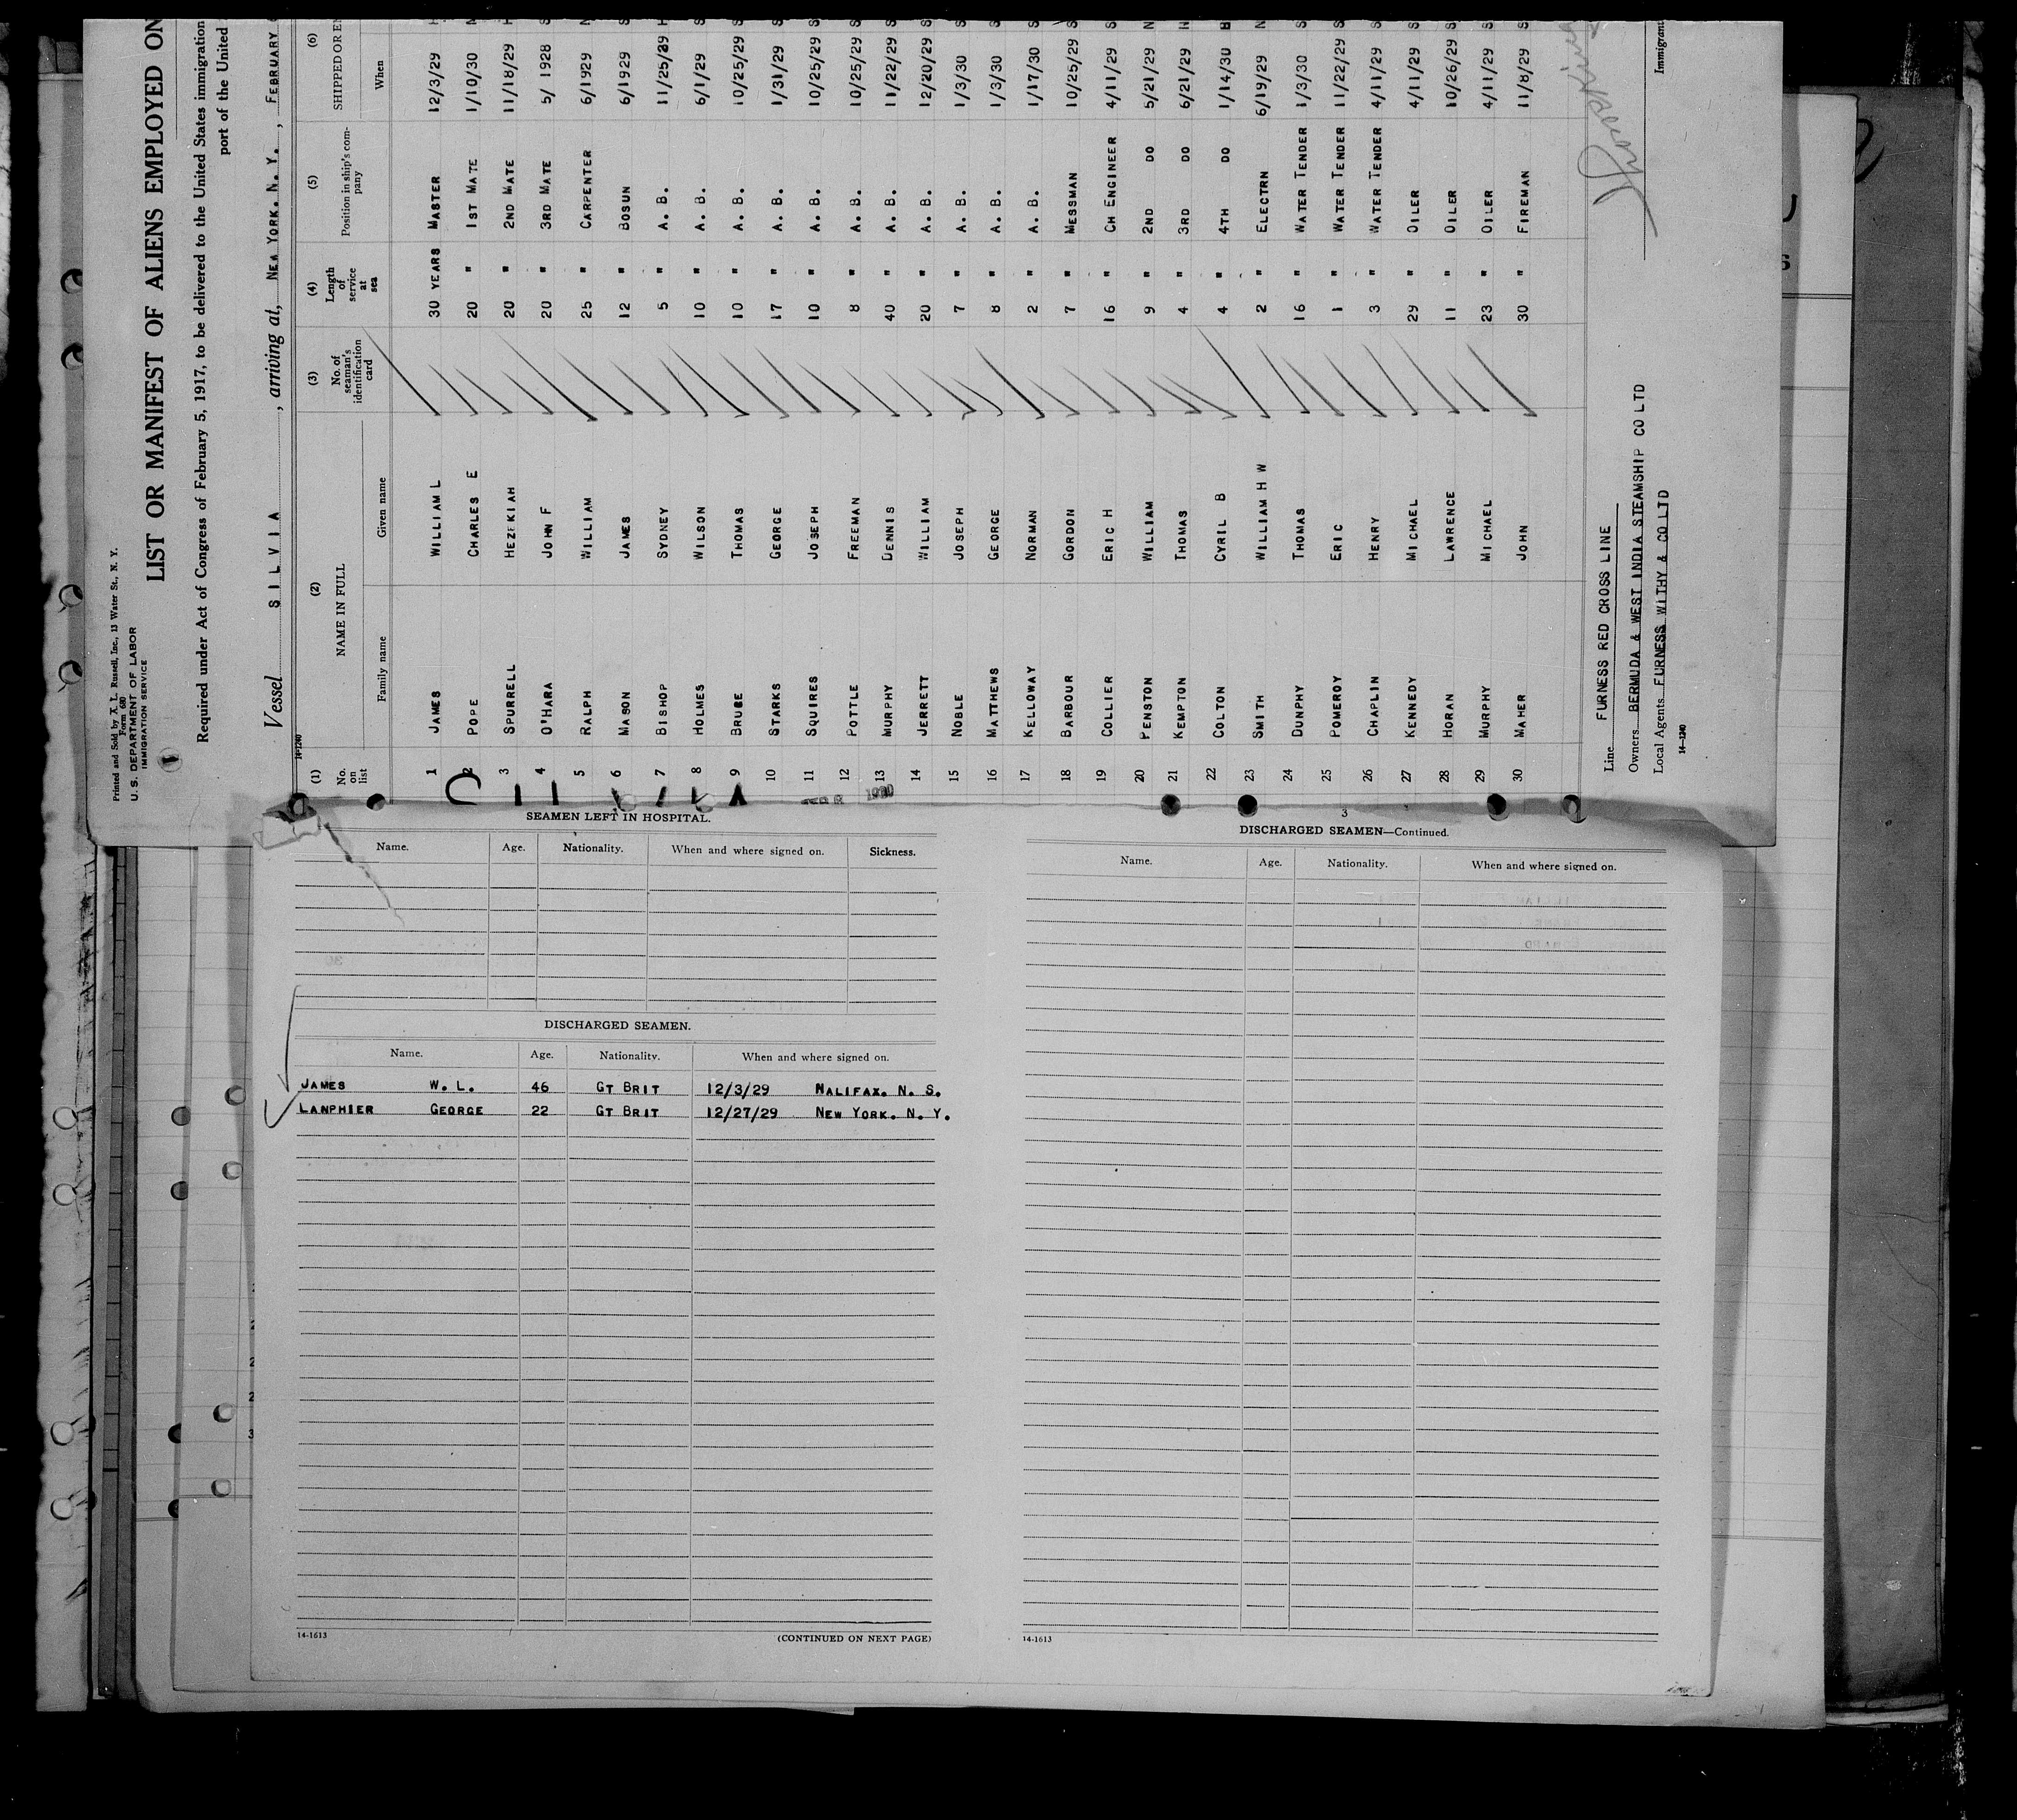 Printed and Sold by X. L. Russell, Inc., 13 Water St., N. Y.
Form 680
U. S. DEPARTMENT OF LABOR
IMMIGRATION SERVICE
LIST OR MANIFEST OF ALIENS EMPLOYED ON
Required under Act of Congress of February 5, 1917, to be delivered to the United States immigration
port of the United
Vessel SILVIA, arriving at, NEW YORK. N. Y., FEBRUARY
14-1240
(1) (2) (3) (4) (5) (6)
No. on list NAME IN FULL No. of seaman's identification card Length of service at sea Position in ship's company SHIPPED OR EN
Family name Given name When
1 JAMES WILLIAM L 30 YEARS MASTER 12/3/29 H
2 POPE CHARLES E 20 " 1ST MATE 1/10/30 N
3 SPURRELL HEZEKIAH 20 " 2ND MATE 11/18/29 H
4 O'HARA JOHN F 20 " 3RD MATE 5/ 1928 S
5 RALPH WILLIAM 25 " CARPENTER 6/1929 N
6 MASON JAMES 12 " BOSUN 6/1929 S
7 BISHOP SYDNEY 5 " A. B. 11/25/29 H
8 HOLMES WILSON 10 " A. B. 6/1/29 S
9 BRUCE THOMAS 10 " A. B. 10/25/29 S
10 STARKS GEORGE 17 " A. B. 1/31/29 S
11 SQUIRES JOSEPH 10 " A. B. 10/25/29 S
12 POTTLE FREEMAN 8 " A. B. 10/25/29 S
13 MURPHY DENNIS 40 " A. B. 11/22/29 S
14 JERRETT WILLIAM 20 " A. B. 12/20/29 S
15 NOBLE JOSEPH 7 " A. B. 1/3/30 S
16 MATTHEWS GEORGE 8 " A. B. 1/3/30 S
17 KELLOWAY NORMAN 2 " A. B. 1/17/30 S
18 BARBOUR GORDON 7 " MESSMAN 10/25/29 S
19 COLLIER ERIC H 16 " CH ENGINEER 4/11/29 S
20 PENSTON WILLIAM 9 " 2ND DO 5/21/29 N
21 KEMPTON THOMAS 4 " 3RD DO 6/21/29 N
22 COLTON CYRIL B 4 " 4TH DO 1/14/30 B
23 SMITH WILLIAM H W 2 " ELECTRN 6/19/29 N
24 DUNPHY THOMAS 16 " WATER TENDER 1/3/30 S
25 POMEROY ERIC 1 " WATER TENDER 11/22/29 S
26 CHAPLIN HENRY 3 " WATER TENDER 4/11/29 S
27 KENNEDY MICHAEL 29 " OILER 4/11/29 S
28 HORAN LAWRENCE 11 " OILER 10/26/29 S
29 MURPHY MICHAEL 23 " OILER 4/11/29 S
30 MAHER JOHN 30 " FIREMAN 11/8/29 S
Line FURNESS RED CROSS LINE
Owners BERMUDA & WEST INDIA STEAMSHIP CO LTD
Local Agents FURNESS WITHY & CO LTD
14-1240
Immigrant
SEAMEN LEFT IN HOSPITAL.
Name. Age. Nationality. When and where signed on. Sickness.
DISCHARGED SEAMEN.
Name. Age. Nationality. When and where signed on.
JAMES W. L. 46 GT BRIT 12/3/29 NALIFAX. N. S.
LANPHIER GEORGE 22 GT BRIT 12/27/29 NEW YORK. N. Y.
14-1613 (CONTINUED ON NEXT PAGE)
3
DISCHARGED SEAMEN—Continued.
Name. Age. Nationality. When and where signed on.
14-1613